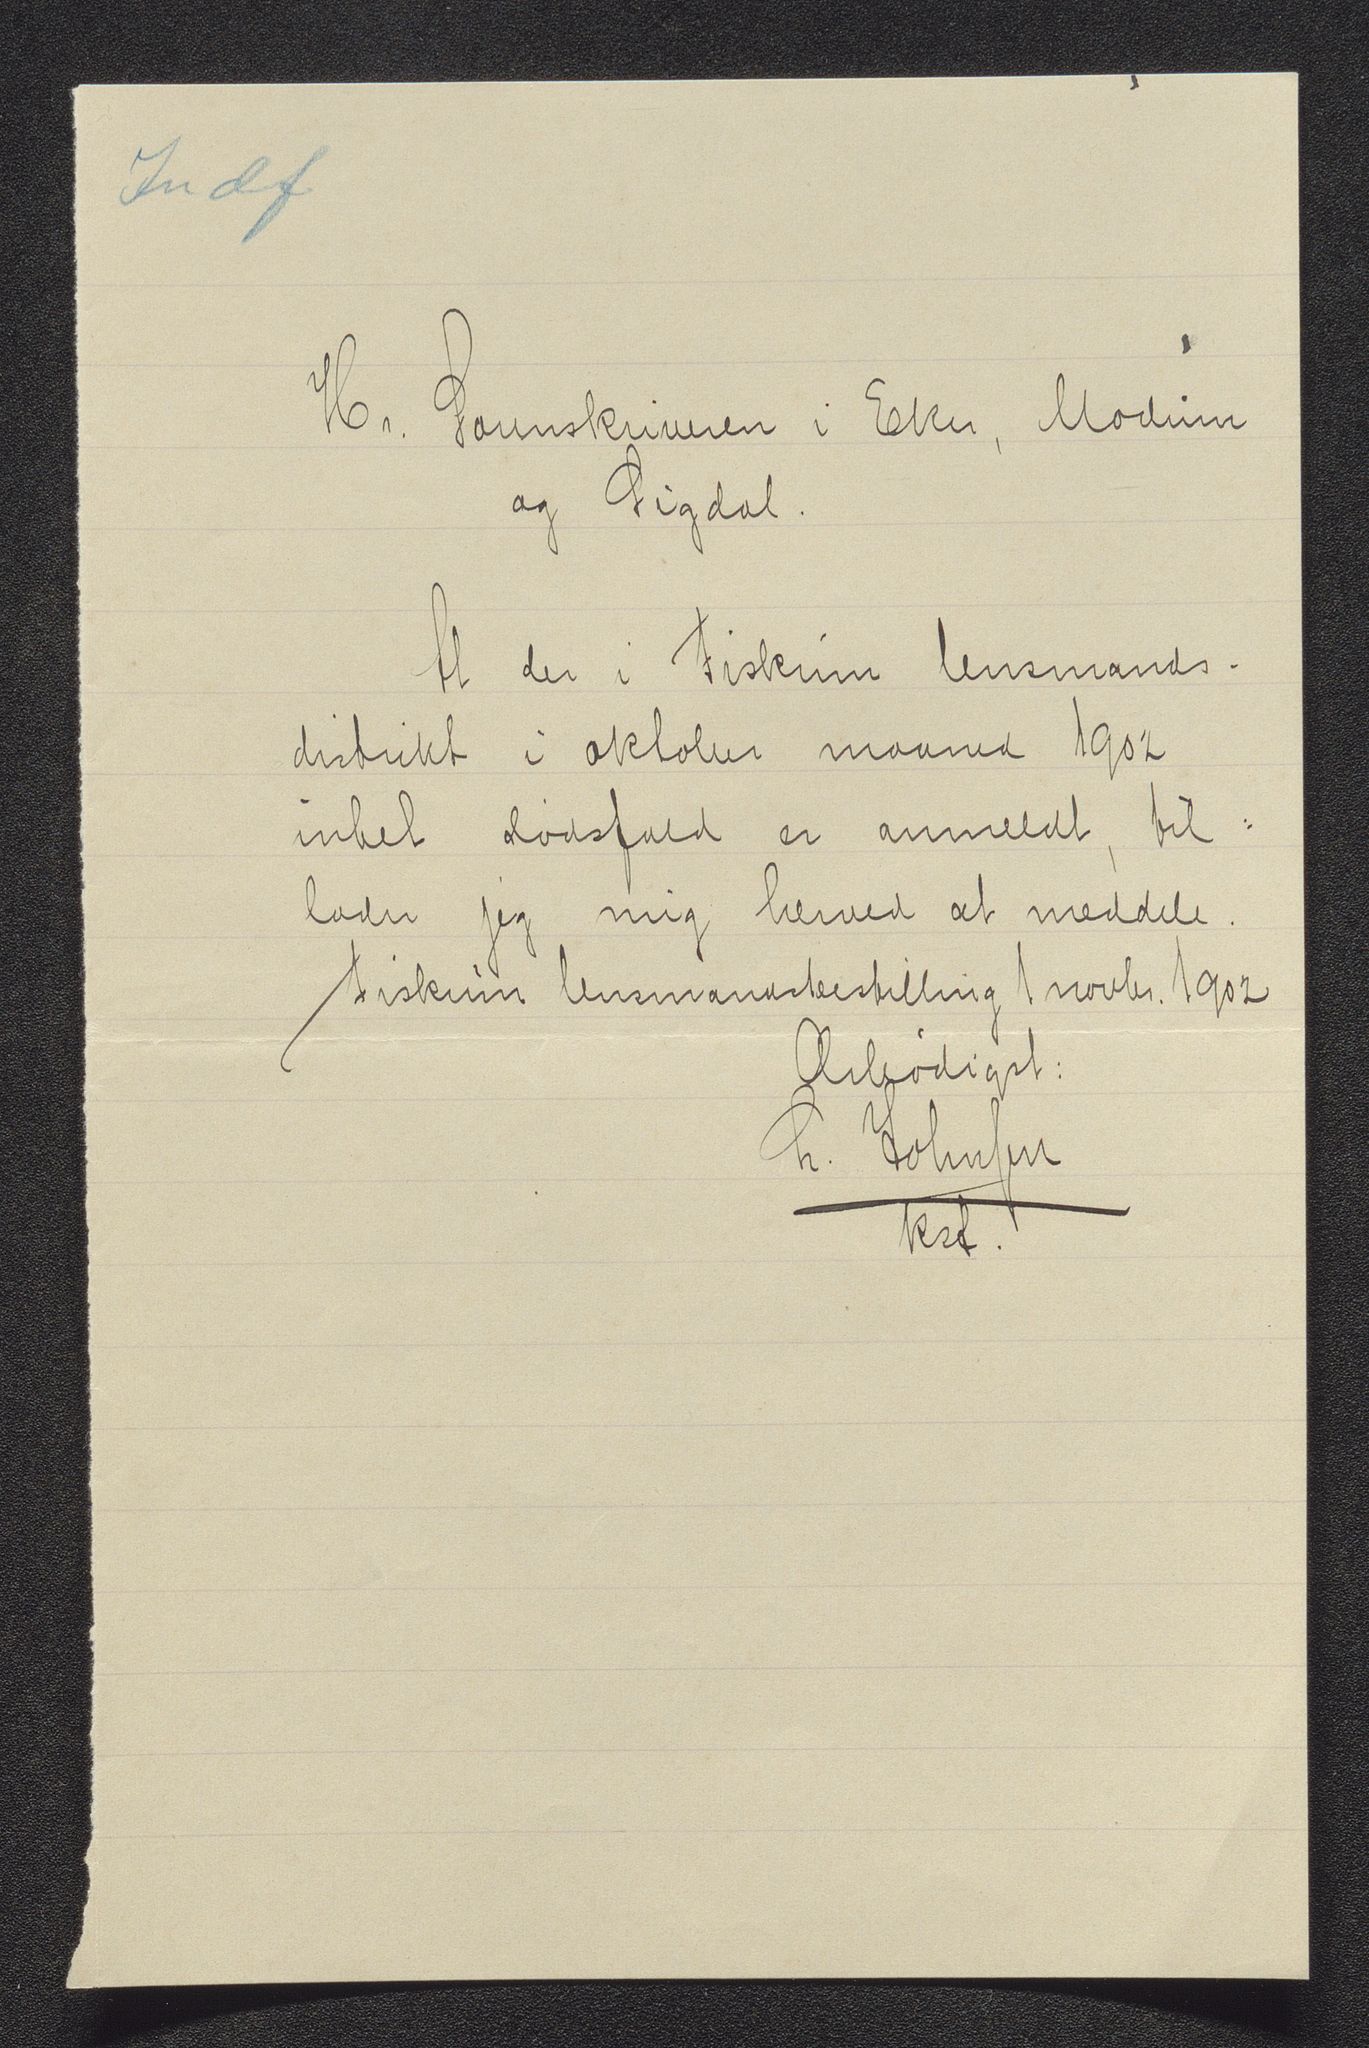 Indf
Hr. Sorenskriveren i Eker, Modum
og Sigdal.
At der i Fiskum lensmands-
distrikt i oktober maaned 1902
intet dødsfald er anmeldt, til:
lader jeg mig herved at meddele.
Fiskum lensmandsbestilling 1 novbr. 1902
Ærbødigst:
Johnsen
kst.